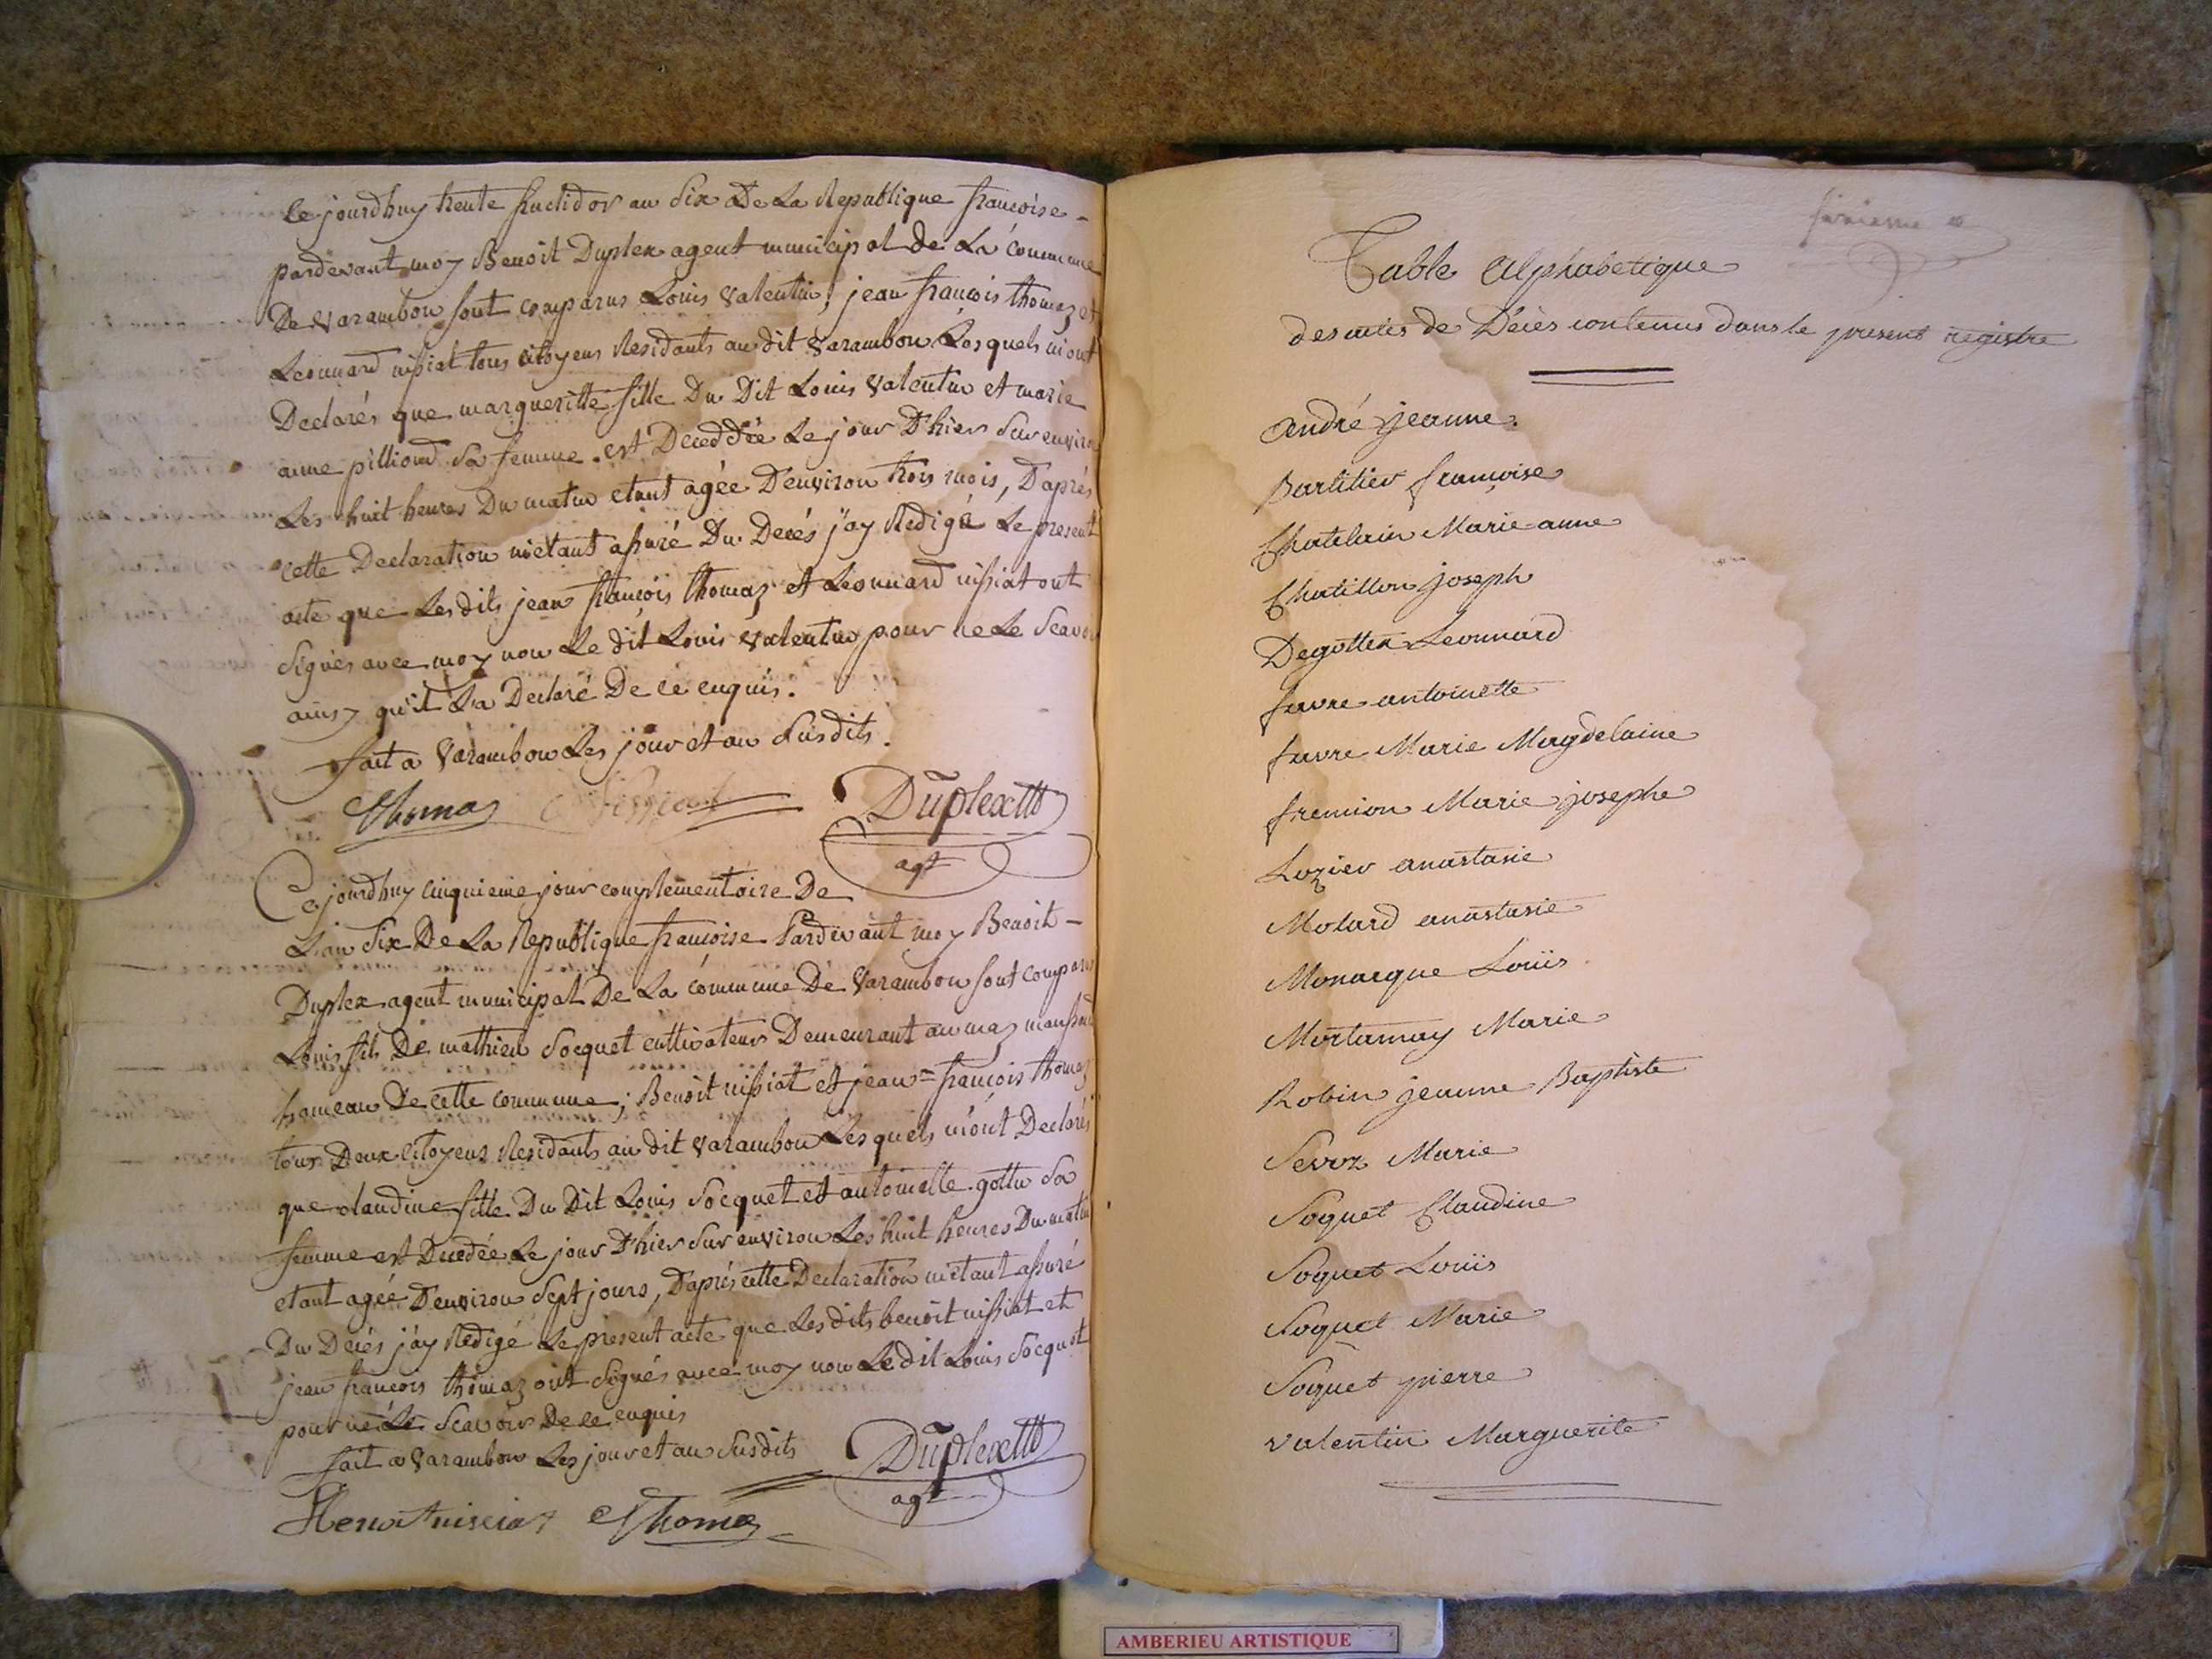 Ce jourdhuy trente fructidor an Six De La Republique francoise -
pardevant moy Benoit Duplex agent municipal de La commune
De varambon sont comparus Louis valentin, jean francois thomaz et
Leonnard nissiat tous citoyens Residants au dit varambon Lesquels m'ont
Declarés que margueritte fille Du Dit Louis valentin et marie
anne pilliond Sa femme est Deceddée Le jour D'hier Sur environ
Les huit heures Du matin etant agée D'environ trois mois, D'aprés
cette Declaration m'etant assuré Du Decés j'ay Redigé Le present
acte que Les dits jean francois thomaz et Leonnard nissiat ont
Signés avec moy non Le dit Louis valentin pour ne Le Scavoir
ainsy qu'il L'a Declaré De ce enquis.
fait a varambon Les jour et an Susdits.
Thomaz Nissiat Duplex
agt
Ce jourdhuy cinquieme jour complementaire De
L'an Six De La Republique francoise Pardevant moy Benoit -
Duplex agent municipal De La commune De varambon sont comparus
Louis fils De mathieu Socquet cultivateur Demeurant au maz
hameau De cette commune; Benoit nissiat et jean = francois thomaz
tous Deux citoyens Residants au dit varambon Lesquels m'ont Declarés
que claudine fille Du Dit Louis Socquet et antoinette gottu Sa
femme est Decedée Le jour D'hier Sur environ Les huit heures Du matin
etant agée D'environ Sept jours, D'aprés cette Declaration m'etant assuré
Du Decés j'ay Redigé Le present acte que Les dits benoit nissiat et
jean francois thomaz ont Signés avec moy non Le dit Louis Socquet
pour ne Le Scavoir De ce enquis
fait a varambon Les jour et an Susdits
Duplex
agt
Benoit nissiat Thomaz
Table Alphabetique
des actes de Décès contenus dans le present registre
andré jeanne.
Bartilier françoise
Chatelain Marie anne
Chatillon joseph
Degottex Leonnard
favre antoinette
favre Marie Magdelaine
fremion Marie josephe
Lozier anastasie
Molard anastasie
Monarque Louis
Mortamay Marie
Robin jeanne Baptiste
Sevoz Marie
Soquet Claudine
Soquet Louis
Soquet Marie
Soquet pierre
valentin Marguerite
AMBERIEU ARTISTIQUE